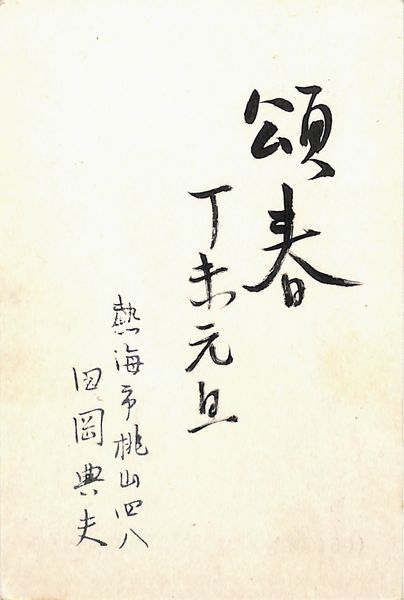 頌春
丁未元旦
熱海市桃山四八
田岡典夫